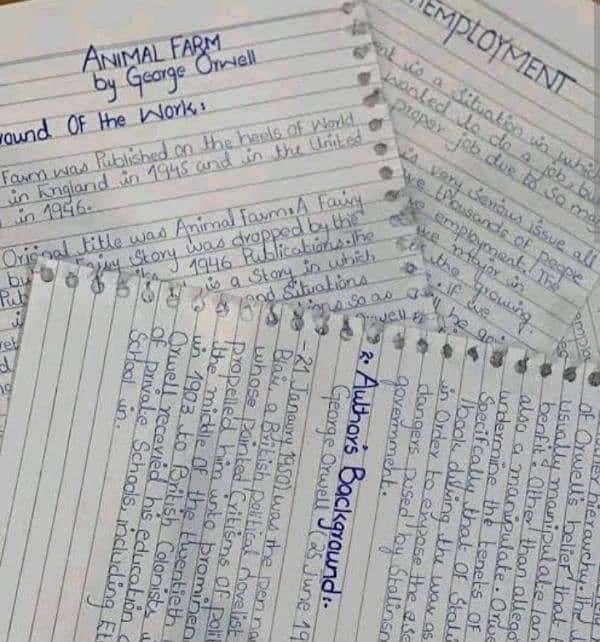 ANIMAL FARM
by George Orwell
round Of the Work:
Farm was Published on the heels of World
in England in 1945 and in the United
in 1946.
Original title was Animal Farm: A Fairy
Fairy Story was dropped by the
1946 Publications. The
is a Story in which
and Situations
so as
EMPLOYMENT
is a situation in which
wanted to do a job, bu
proper job due to so ma
is very serious issue all
thousands of people
employment. The
major in
the growing
if we
2. Author's Background:
George Orwell (25 June 19
- 21 Janaury 1950) was the pen na
Blair, a British political novelist
whose pointed Critisms of poli
propelled him into prominen
the middle of the twentieth
in 1903 to British Colonist
Orwell recevied his edication
of private Schools, including Et
School in
hierarchy. Ind
of Orwell's belief that
usually manipulate lan
benfit. Other than alleg
also a manipulate. Orw
undermine the tenets of
Specifcaly that of Stal
book diving the war as
in Order to expose the
dangers posed by Stalinsn
government.